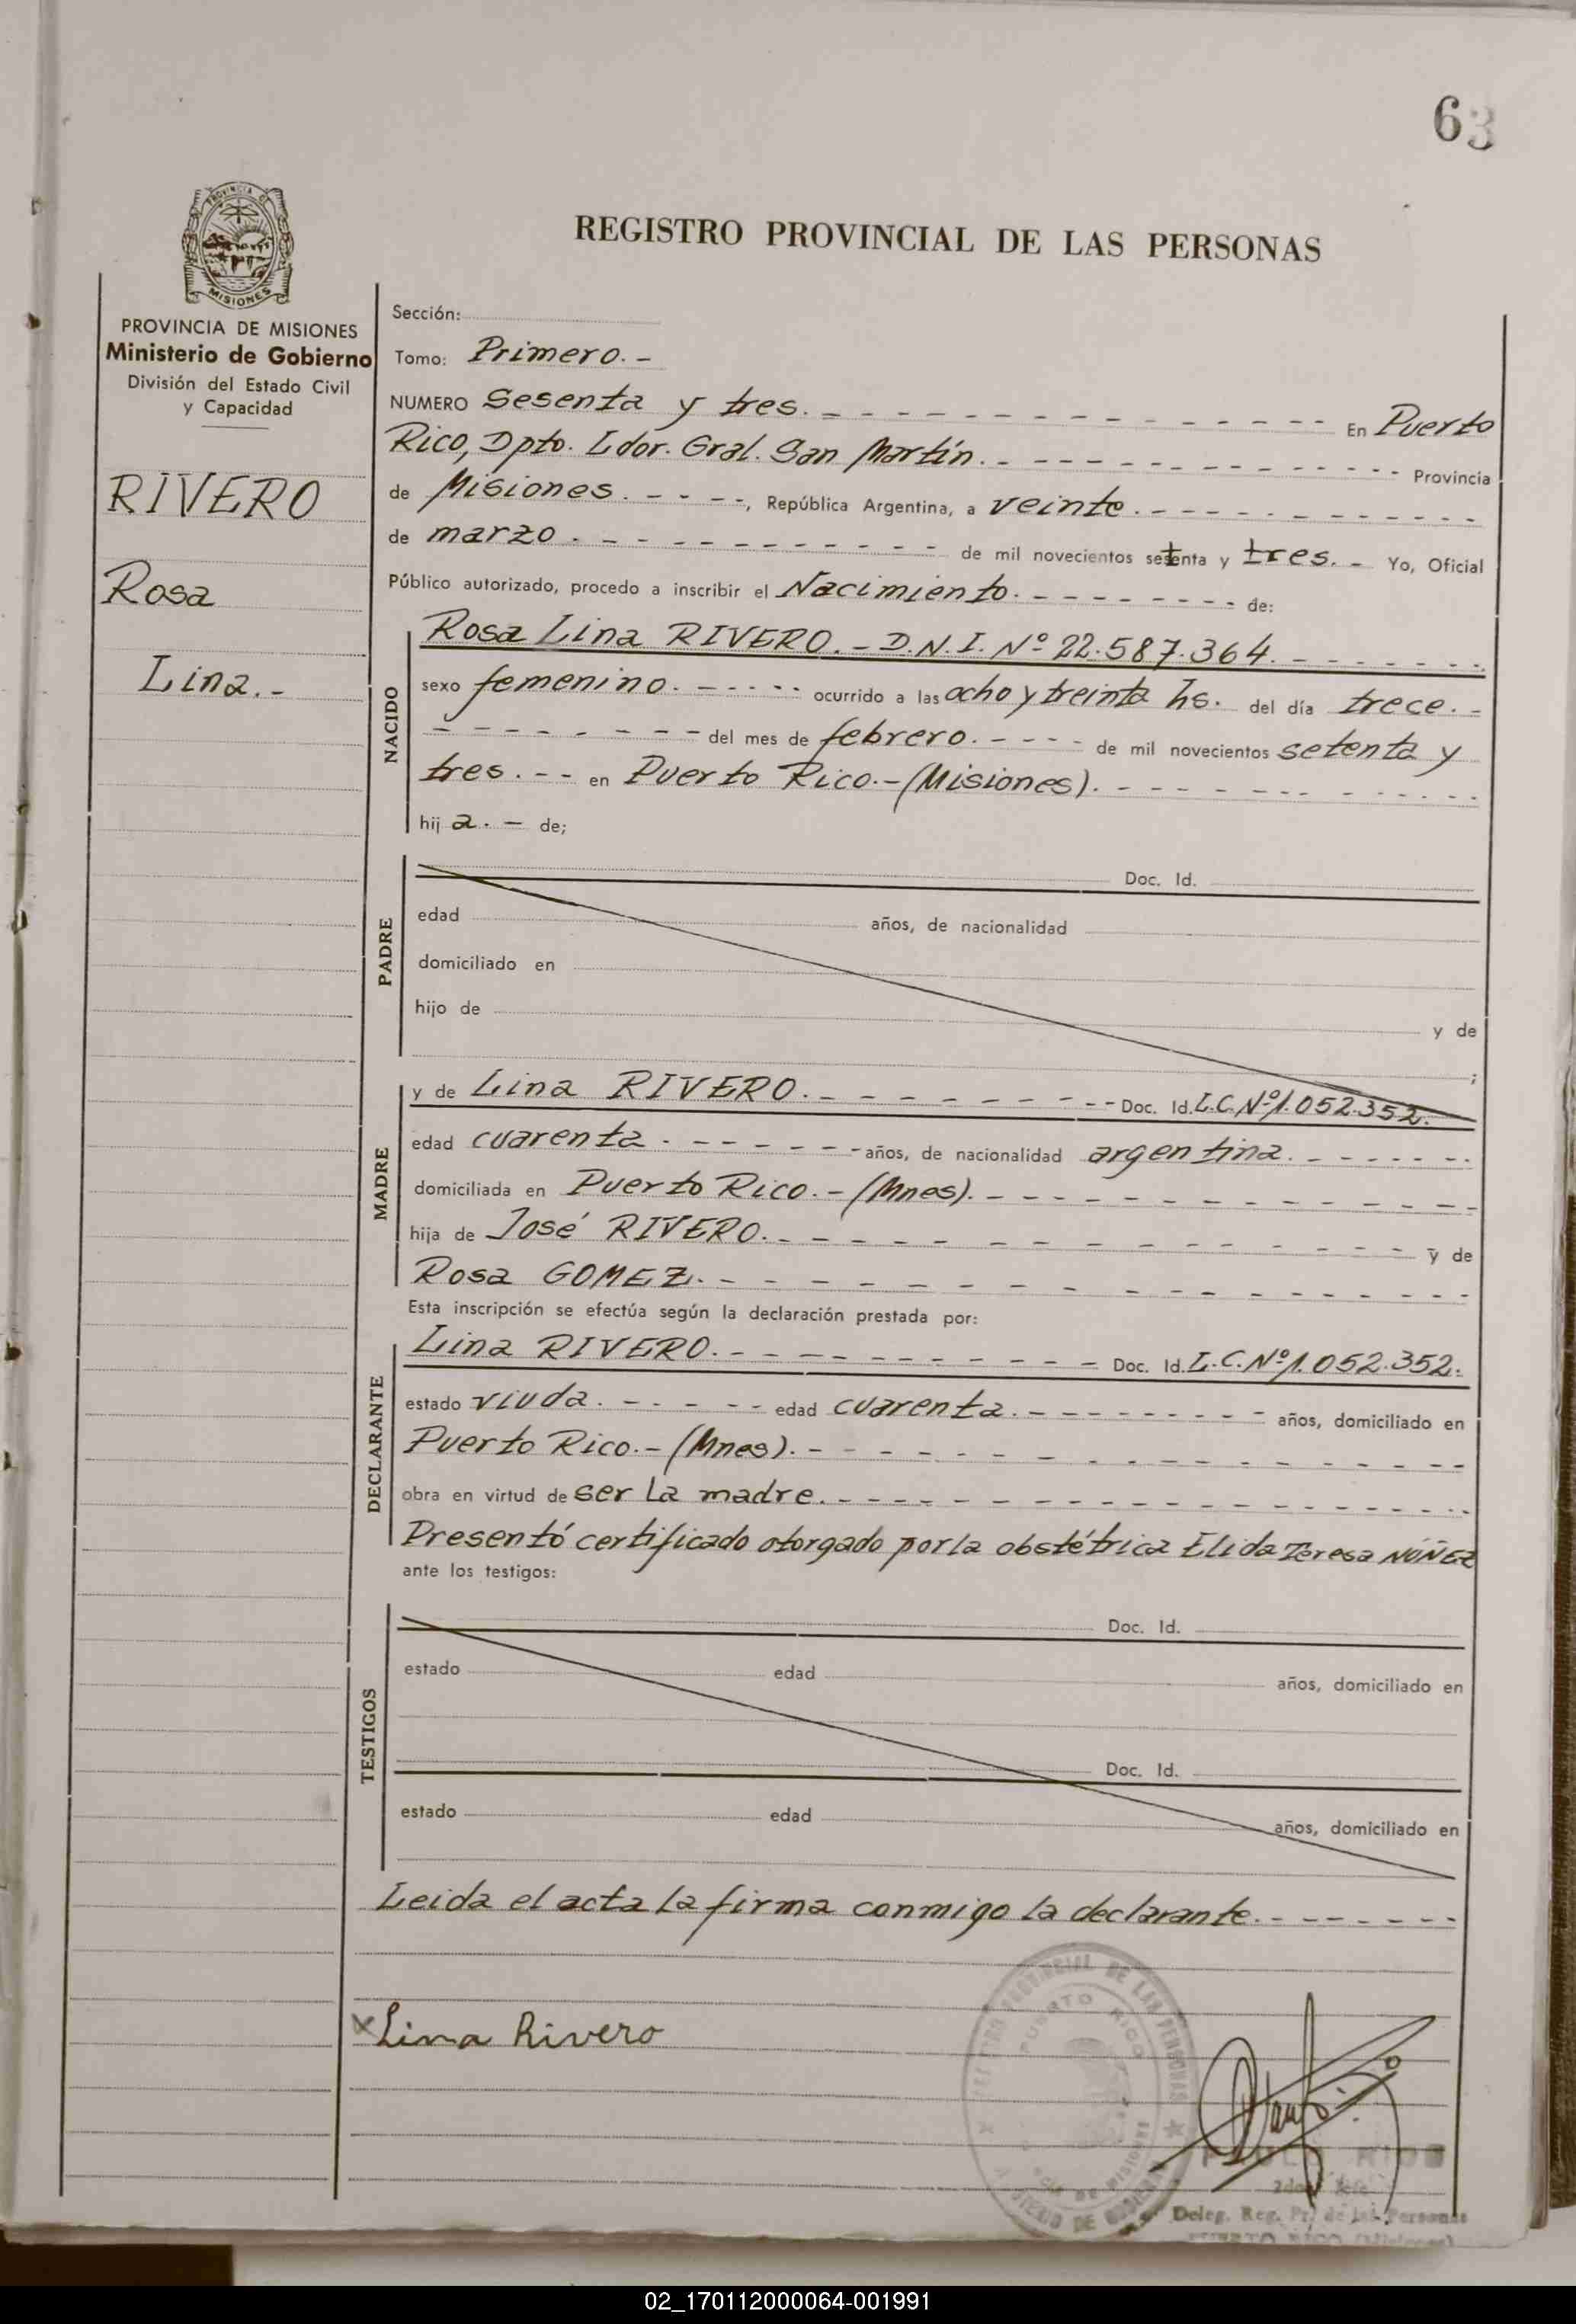 63
REGISTRO PROVINCIAL DE LAS PERSONAS
PROVINCIA
MISIONES
PROVINCIA DE MISIONES
Ministerio de Gobierno
División del Estado Civil
y Capacidad
RIVERO
Rosa
Lina.-
Sección:
Tomo: Primero.-
NUMERO Sesenta y tres. - - - - - - - - - - - - - - En Puerto
Rico, Dpto. Ldor. Gral. San Martín. - - - - - - - - - - - - - - Provincia
de Misiones. - - - -, República Argentina, a veinte. - - - - - - - - - - -
de marzo. - - - - - - - - - - - - de mil novecientos setenta y tres. - Yo, Oficial
Público autorizado, procedo a inscribir el Nacimiento. - - - - - - - - de:
NACIDO
Rosa Lina RIVERO. - D.N.I. Nº 22.587.364. - - - - - -
sexo femenino. - - - - - ocurrido a las ocho y treinta hs. del día trece. -
- - - - - - - - - del mes de febrero. - - - - de mil novecientos setenta y
tres. - - en Puerto Rico.- (Misiones). - - - - - - - - - - - -
hija. - de;
PADRE
Doc. Id.
edad años, de nacionalidad
domiciliado en
hijo de y de
;
MADRE
y de Lina RIVERO. - - - - - - - - - Doc. Id. L.C. Nº 1.052.352.
edad cuarenta. - - - - - - años, de nacionalidad argentina. - - - - - -
domiciliada en Puerto Rico.- (Mnes). - - - - - - - - - - - - -
hija de José RIVERO. - - - - - - - - - - - - - - - y de
Rosa GOMEZ. - - - - - - - - - - - - - - - - -
Esta inscripción se efectúa según la declaración prestada por:
DECLARANTE
Lina RIVERO. - - - - - - - - - - - Doc. Id. L.C. Nº 1.052.352.
estado viuda. - - - - - edad cuarenta. - - - - - - - - años, domiciliado en
Puerto Rico.- (Mnes). - - - - - - - - - - - - - - - -
obra en virtud de ser la madre. - - - - - - - - - - - - - - -
Presentó certificado otorgado por la obstétrica Elida Teresa NÚÑEZ
ante los testigos:
TESTIGOS
Doc. Id.
estado edad años, domiciliado en
Doc. Id.
estado edad años, domiciliado en
Leida el acta la firma conmigo la declarante. - - - - - - -
x Lina Rivero
PROVINCIAL DE LAS PERSONAS
PUERTO RICO
DE MISIONES
2do. Jefe
Deleg. Reg. Pr. de las Personas
PUERTO RICO (Misiones)
02_170112000064-001991